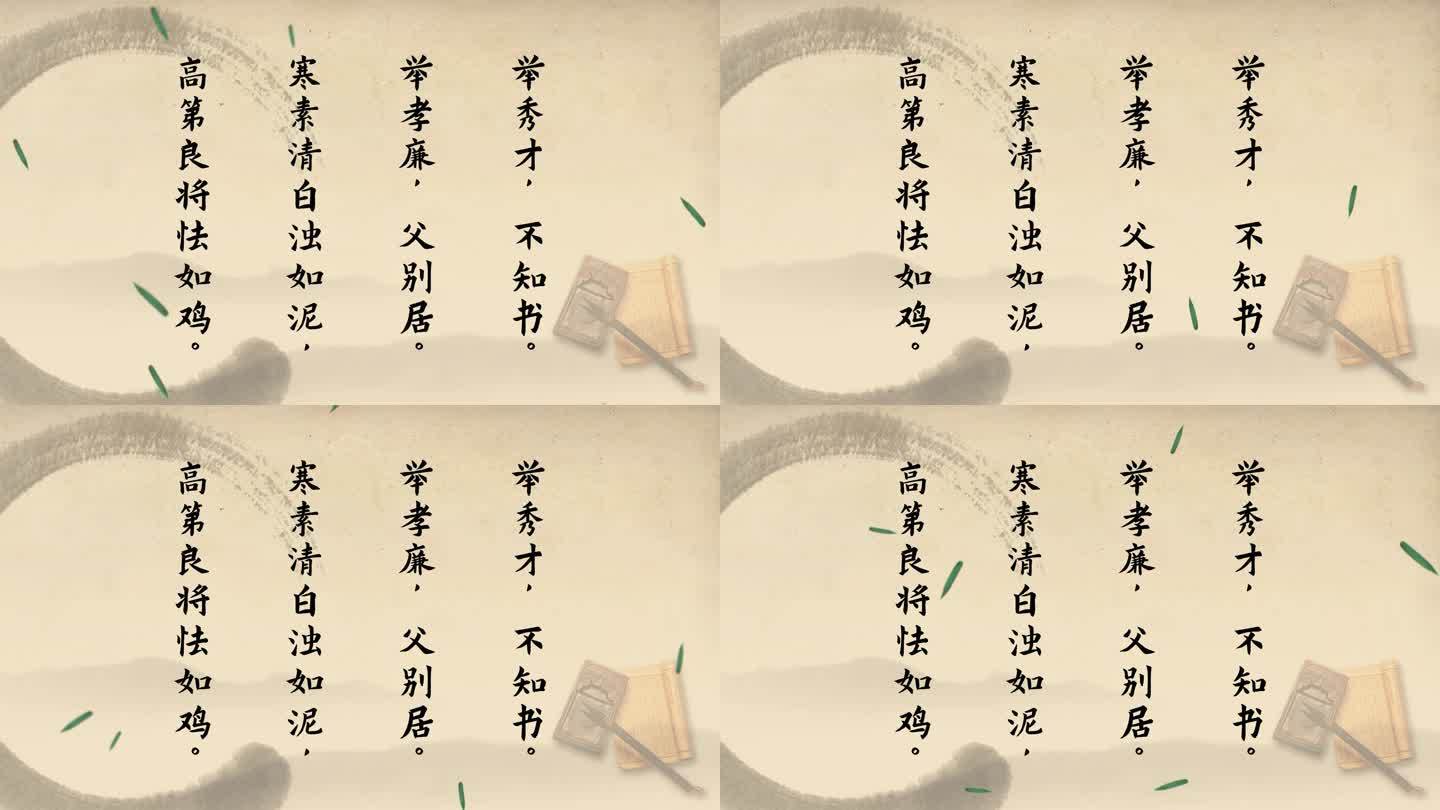 举秀才，不知书。
举孝廉，父别居。
寒素清白浊如泥，
高第良将怯如鸡。
举秀才，不知书。
举孝廉，父别居。
寒素清白浊如泥，
高第良将怯如鸡。
举秀才，不知书。
举孝廉，父别居。
寒素清白浊如泥，
高第良将怯如鸡。
举秀才，不知书。
举孝廉，父别居。
寒素清白浊如泥，
高第良将怯如鸡。